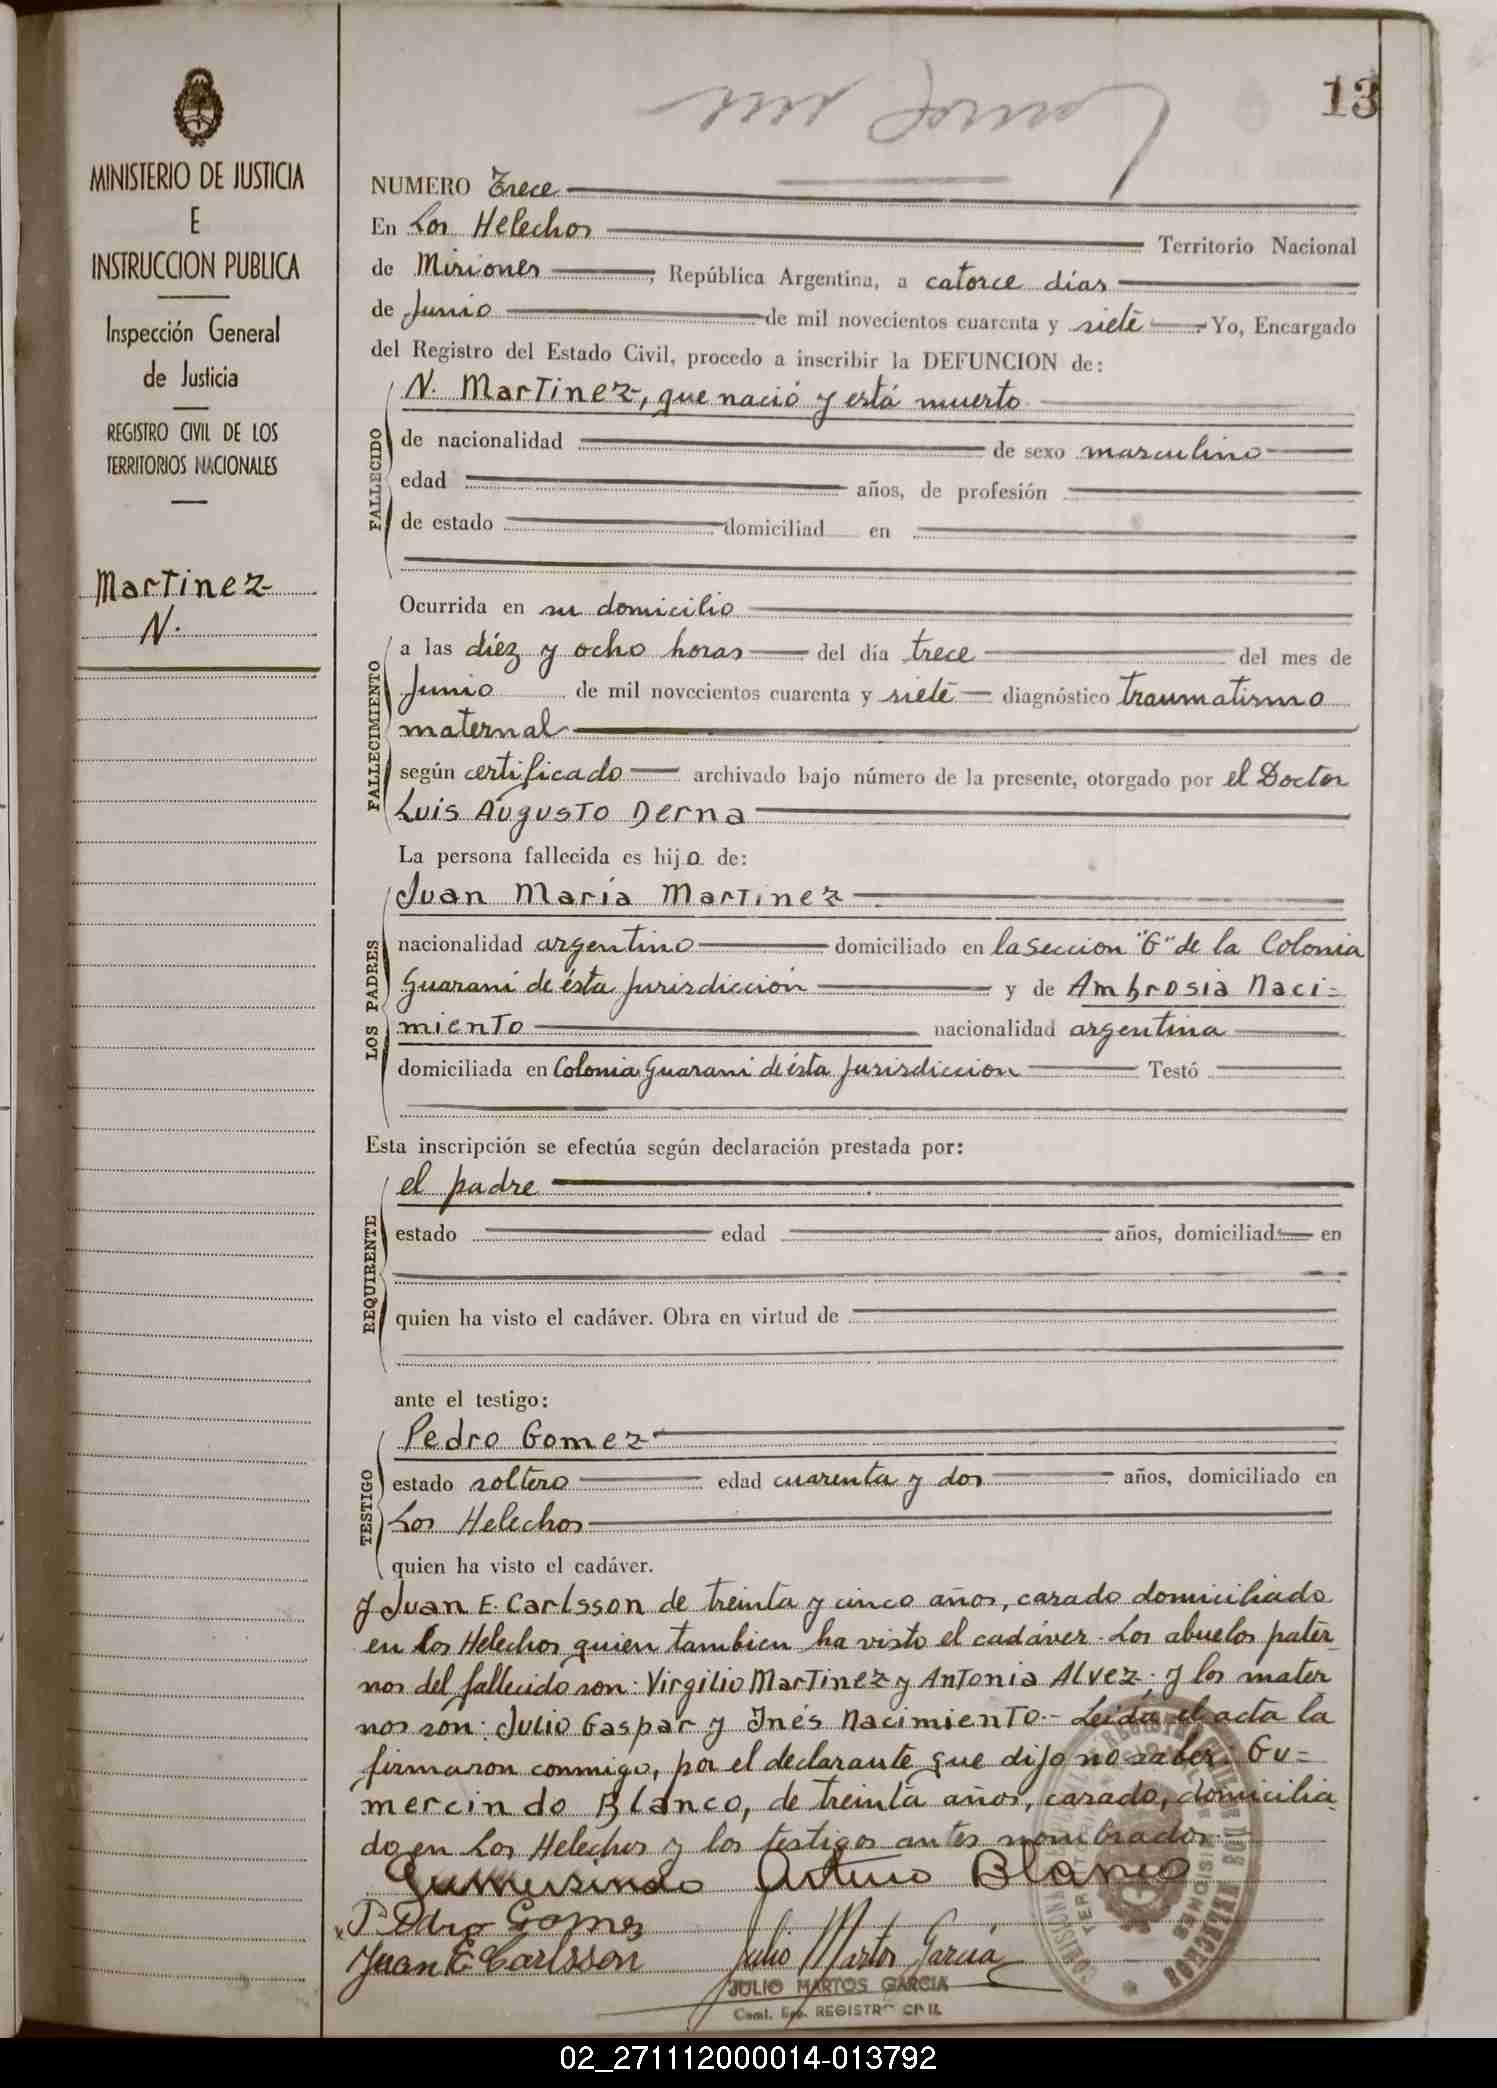 13
MINISTERIO DE JUSTICIA
E
INSTRUCCION PUBLICA
Inspección General
de Justicia
REGISTRO CIVIL DE LOS
TERRITORIOS NACIONALES
Martinez
N.
NUMERO Trece
En Los Helechos Territorio Nacional
de Misiones, República Argentina, a catorce días
de Junio de mil novecientos cuarenta y siete Yo, Encargado
del Registro del Estado Civil, procedo a inscribir la DEFUNCION de:
N. Martinez, que nació y está muerto
FALLECIDO
de nacionalidad de sexo masculino
edad años, de profesión
de estado domiciliad en
Ocurrida en su domicilio
FALLECIMIENTO
a las diéz y ocho horas del día trece del mes de
Junio de mil novecientos cuarenta y siete diagnóstico traumatismo
maternal
según certificado archivado bajo número de la presente, otorgado por el Doctor
Luis Augusto Derna
La persona fallecida es hijo de:
LOS PADRES
Juan María Martinez
nacionalidad argentino domiciliado en la Seccion "G" de la Colonia
Guaraní de ésta Jurisdicción y de Ambrosia Naci=
miento nacionalidad argentina
domiciliada en Colonia Guaraní de ésta Jurisdiccion Testó
Esta inscripción se efectúa según declaración prestada por:
REQUIRENTE
el padre
estado edad años, domiciliad en
quien ha visto el cadáver. Obra en virtud de
ante el testigo:
TESTIGO
Pedro Gomez
estado soltero edad cuarenta y dos años, domiciliado en
Los Helechos
quien ha visto el cadáver.
y Juan E. Carlsson de treinta y cinco años, casado domiciliado
en Los Helechos quien tambien ha visto el cadáver. Los abuelos pater
nos del fallecido son: Virgilio Martinez y Antonia Alvez. y los mater
nos son: Julio Gaspar y Inés Nacimiento.- Leída el acta la
firmaron conmigo, por el declarante que dijo no saber. Gu=
mercindo Blanco, de treinta años, casado, domicilia
do en Los Helechos y los testigos antes nombrados.
Gumersindo Arturo Blanco
Pedro Gomez
Juan E. Carlsson Julio Martos García
JULIO MARTOS GARCIA
REGISTRO CIVIL
02_271112000014-013792